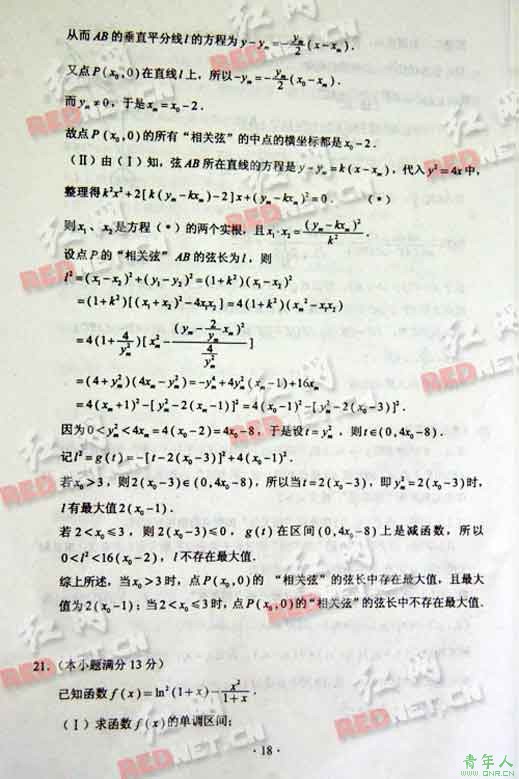 从而 AB 的垂直平分线 l 的方程为 y-yₘ=-yₘ/2(x-xₘ).
又点 P(x₀,0)在直线 l 上，所以-yₘ=-yₘ/2(x₀-xₘ).
而 yₘ≠0，于是 xₘ=x₀-2.
故点 P(x₀,0)的所有“相关弦”的中点的横坐标都是 x₀-2.
(Ⅱ) 由(Ⅰ)知，弦 AB 所在直线的方程是 y-yₘ=k(x-xₘ)，代入 y²=4x 中，
整理得 k²x²+2[k(yₘ-kxₘ)-2]x+(yₘ-kxₘ)²=0. (*)
则 x₁、x₂是方程(*)的两个实根，且 x₁·x₂=(yₘ-kxₘ)²/k².
设点 P 的“相关弦” AB 的弦长为 l，则
l²=(x₁-x₂)²+(y₁-y₂)²=(1+k²)(x₁-x₂)²
=(1+k²)[(x₁+x₂)²-4x₁x₂]=4(1+k²)(xₘ²-x₁x₂)
=4(1+4/yₘ²)[xₘ²-(yₘ-2/yₘ xₘ)²/(4/yₘ²)]
=(4+yₘ²)(4xₘ-yₘ²)=-yₘ⁴+4yₘ²(xₘ-1)+16xₘ
=4(xₘ+1)²-[yₘ²-2(xₘ-1)]²=4(x₀-1)²-[yₘ²-2(x₀-3)]².
因为 0<yₘ²<4xₘ=4(x₀-2)=4x₀-8，于是设 t=yₘ²，则 t∈(0,4x₀-8).
记 l²=g(t)=-[t-2(x₀-3)]²+4(x₀-1)².
若 x₀>3，则 2(x₀-3)∈(0,4x₀-8)，所以当 t=2(x₀-3)，即 yₘ²=2(x₀-3)时，
l 有最大值 2(x₀-1).
若 2<x₀≤3，则 2(x₀-3)≤0，g(t)在区间(0,4x₀-8)上是减函数，所以
0<l²<16(x₀-2)，l 不存在最大值.
综上所述，当 x₀>3 时，点 P(x₀,0)的 “相关弦”的弦长中存在最大值，且最大
值为 2(x₀-1)；当 2<x₀≤3 时，点 P(x₀,0)的“相关弦”的弦长中不存在最大值.
21. (本小题满分 13 分)
已知函数 f(x)=ln²(1+x)-x²/(1+x).
(Ⅰ) 求函数 f(x)的单调区间；
·18·
红网
REDNET.CN
青年人
WWW.QNR.CN